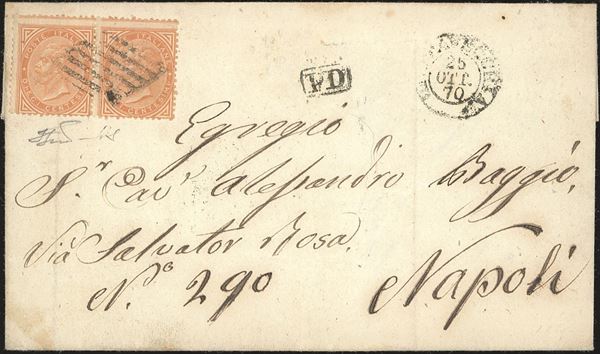 POSTE ITALIANE
POSTE ITALIANE
PD
25
OTT.
70
Egregio
S.r Cav.r Alessandro Baggio,
Via Salvator Rosa.
N.o 290
Napoli